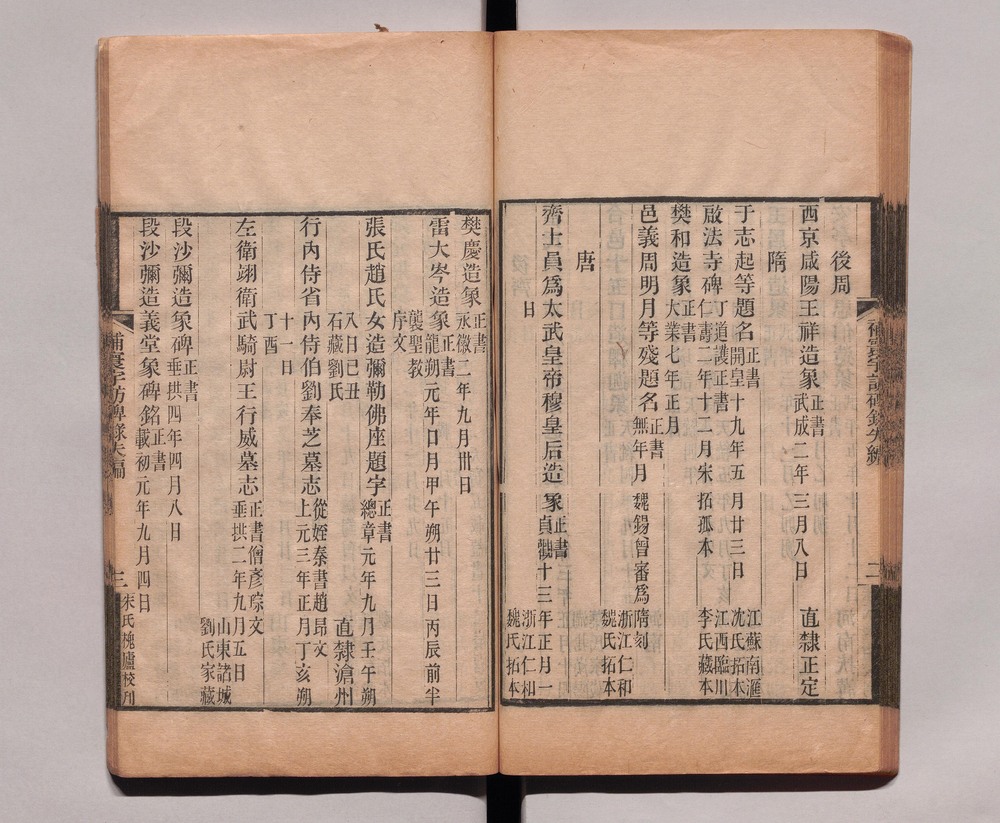 後周
西京咸陽王祥造象正書武成二年三月八日 直隸正定
隋
于志起等題名正書開皇十九年五月廿三日 江蘇南滙沈氏拓本
啟法寺碑丁道護正書仁壽二年十二月宋拓孤本 江西臨川李氏藏本
樊和造象正書大業七年正月
邑義周明月等殘題名正書無年月魏錫曾審爲隋刻 浙江仁和魏氏拓本
唐
齊士員爲太武皇帝穆皇后造象正書貞觀十三年正月一
日 浙江仁和魏氏拓本
樊慶造象正書永徽二年九月卅日
雷大岑造象正書龍朔元年口月甲午朔廿三日丙辰前半
襲聖教
序文
張氏趙氏女造彌勒佛座題字正書總章元年九月壬午朔
八日己丑
石藏劉氏 直隸滄州
行內侍省內侍伯劉奉芝墓志從姪秦書趙昂文上元三年正月丁亥朔
十一日
丁酉
左衛翊衛武騎尉王行威墓志正書僧彥琮文垂拱二年九月五日 山東諸城劉氏家藏
段沙彌造象碑正書垂拱四年四月八日
段沙彌造義堂象碑銘正書載初元年九月四日
補寰宇訪碑錄失編
三
朱氏槐廬校刊
二